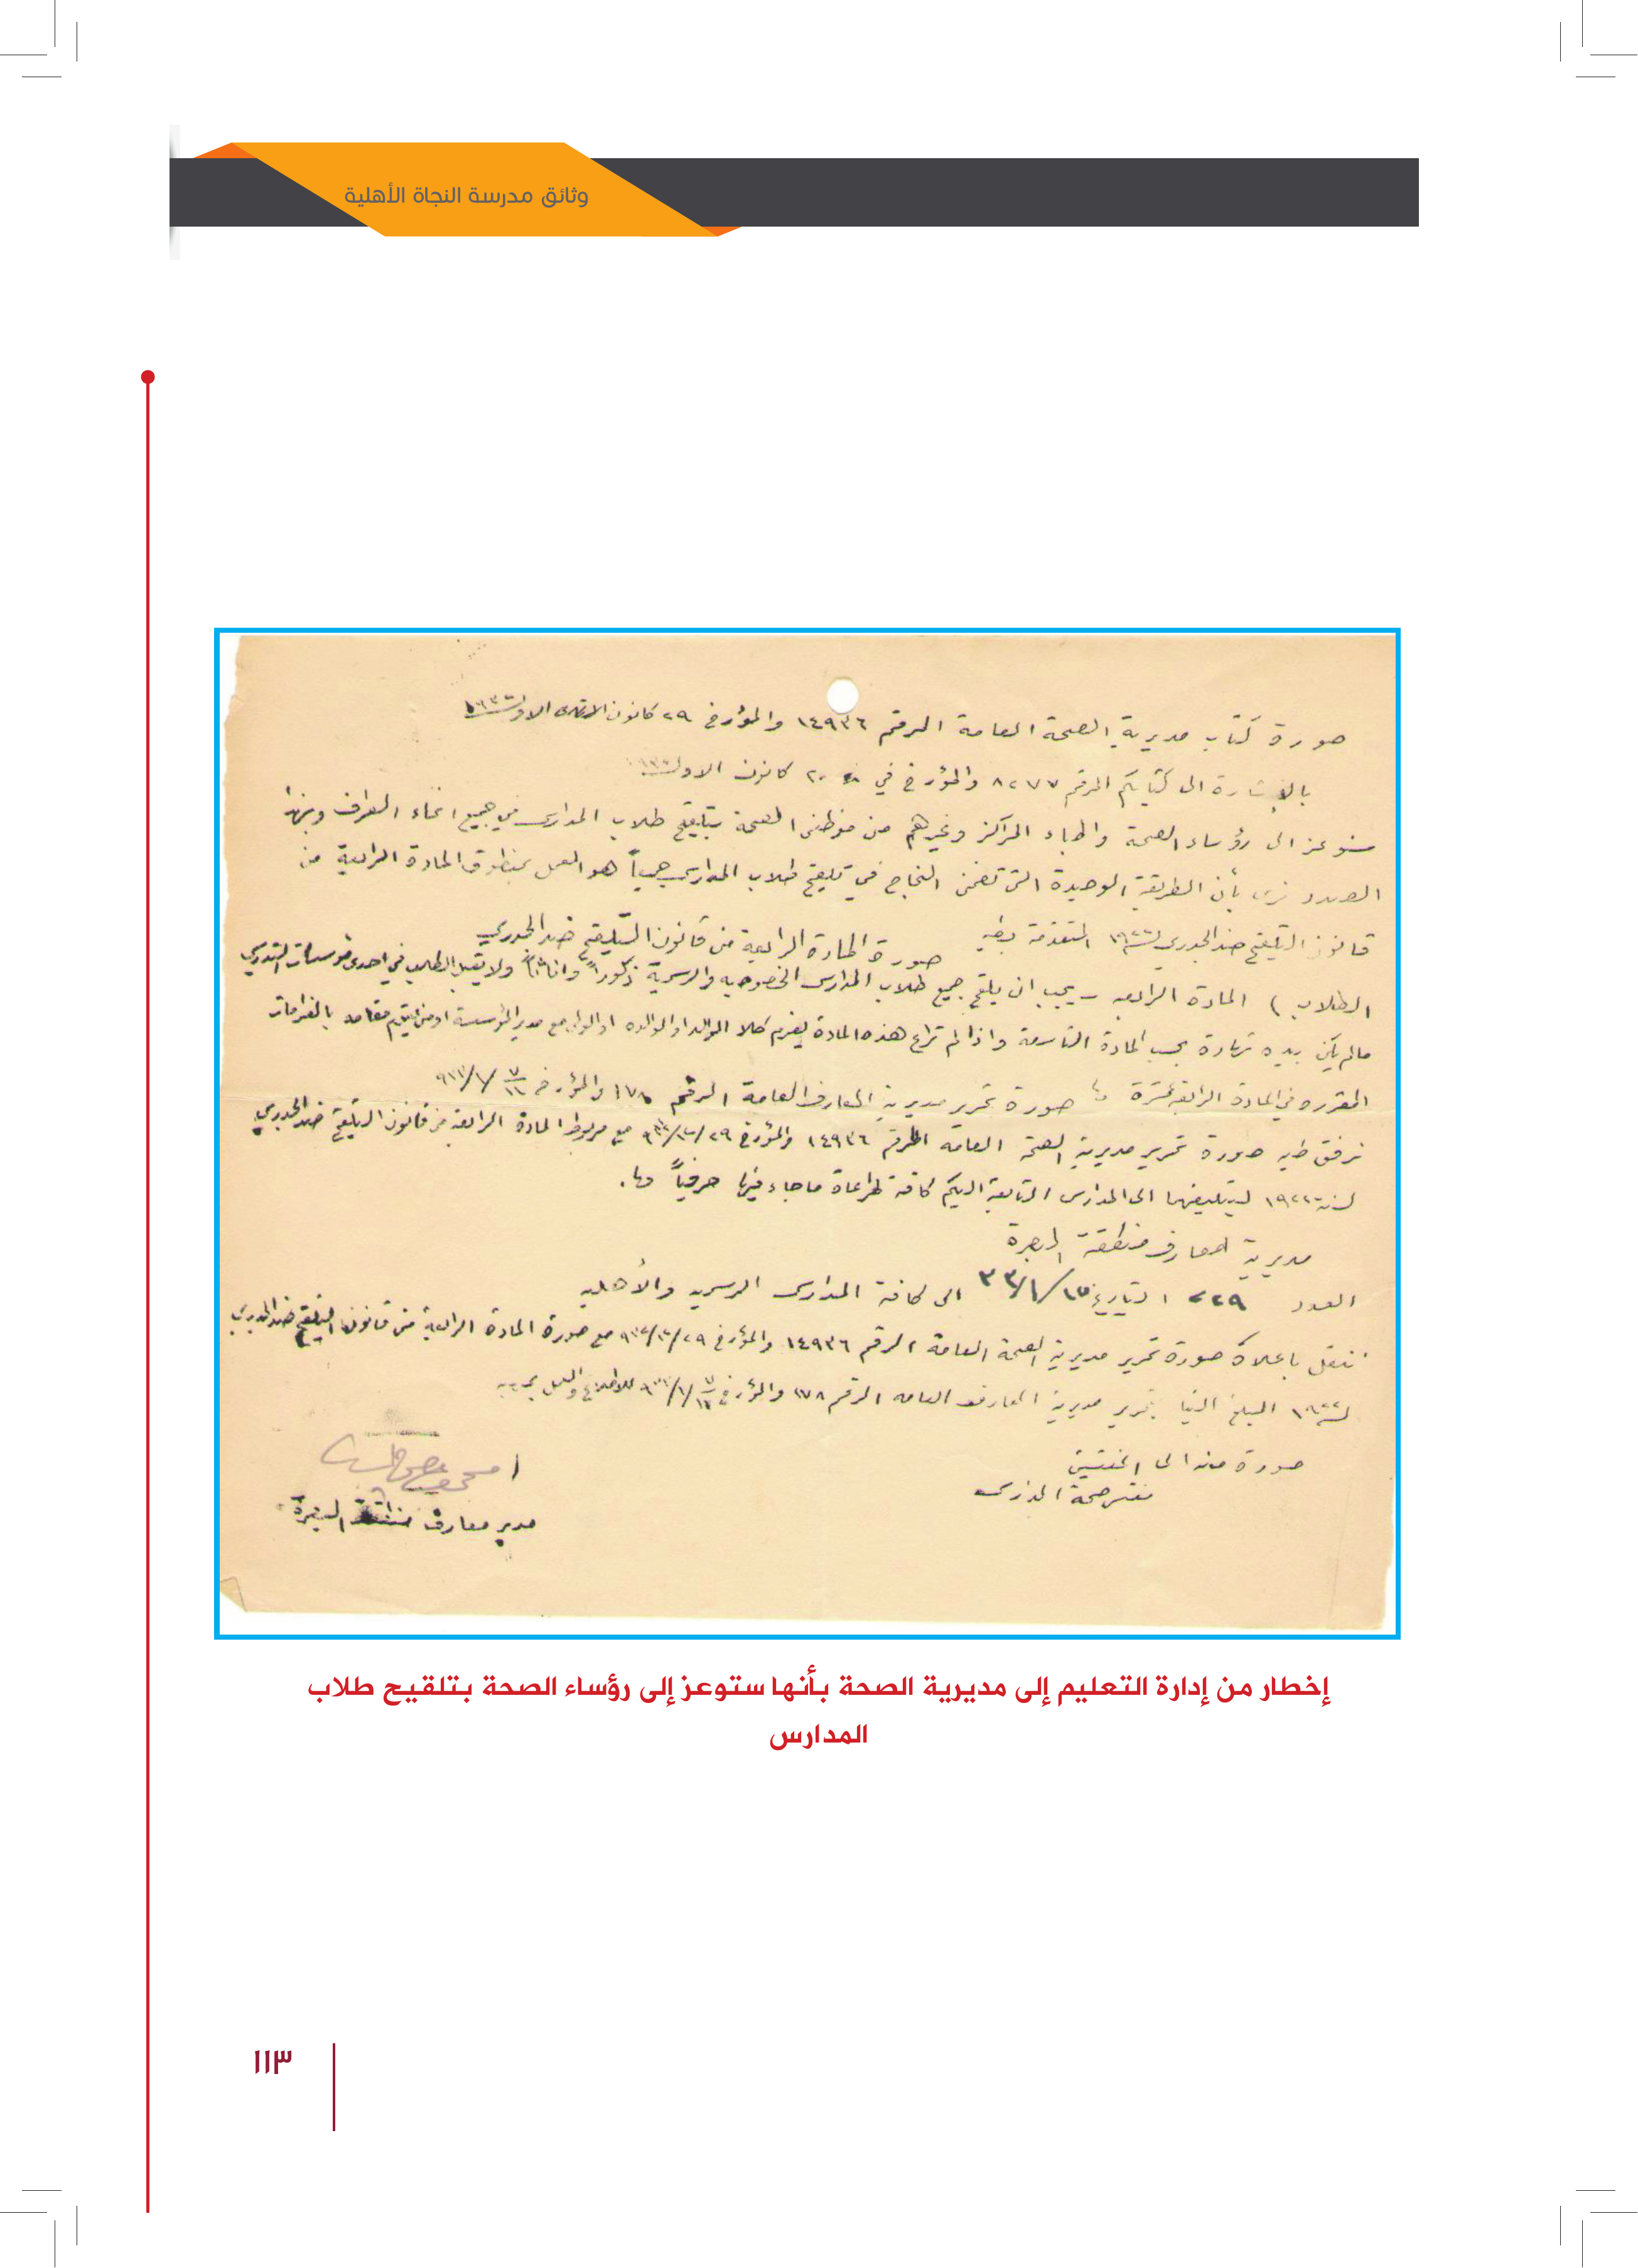 وثائق مدرسة النجاة الأهلية
صورة كتاب مديرية الصحة العامة المرقم ١٤٩٣٦ والمؤرخ ٢٩ كانون الاول
بالاشارة الى كتابكم المرقم ٨٢٧٧ والمؤرخ في ٢٠ كانون الاول
سنوعز الى رؤساء الصحة واطباء المراكز وغيرهم من موظفى الصحة بتلقيح طلاب المدارس في جميع انحاء العراق وبهذا
الصدد نرى بأن الطريقة الوحيدة التى تضمن النجاح في تلقيح طلاب المدارس جميعاً هو العمل بمنطوق المادة الرابعة من
قانون التلقيح ضد الجدري لسنة ١٩٢٢
صورة المادة الرابعة من قانون التلقيح ضد الجدري
الطلاب ) المادة الرابعه – يجب ان يلقح جميع طلاب المدارس الخصوصيه والرسمية ذكوراً واناثاً ولا يقبل الطالب في احدى مؤسسات التدريس
مالم يكن بيده شهادة بحسب المادة التاسعة واذا لم تراع هذه المادة يغرم كلا الوالد او الوالده او الولي مع مدير المؤسسة او من يقوم مقامه بالغرامات
المقرره في المادة الرابعة عشرة صورة تحرير مديرية المعارف العامة المرقم ١٧٨ والمؤرخ
نرفق طيه صورة تحرير مديرية الصحة العامة المرقم ١٤٩٣٦ والمؤرخ ٢٩/١٢/٩٣٢ مع مربوط المادة الرابعة من قانون التلقيح ضد الجدري
لسنة ١٩٢٢ لتبليغها الى المدارس التابعة اليكم كافة لمراعاة ماجاء فيها حرفياً
مديرية معارف منطقة البصرة
العدد ٢٢٩ التاريخ ١٥/١/٣٣ الى كافة المدارس الرسميه والأهليه
ننقل باعلاه صورة تحرير مديرية الصحة العامة المرقم ١٤٩٣٦ والمؤرخ ٢٩/١٢/٩٣٢ مع صورة المادة الرابعة من قانون التلقيح ضد الجدري
لسنة ١٩٢٢ المبلغ الينا بتحرير مديرية المعارف العامه المرقم ١٧٨ والمؤرخ للاطلاع والعمل بموجبه
صورة منه الى المفتشين
مدير معارف منطقة البصرة
إخطار من إدارة التعليم إلى مديرية الصحة بأنها ستوعز إلى رؤساء الصحة بتلقيح طلاب
المدارس
١١٣